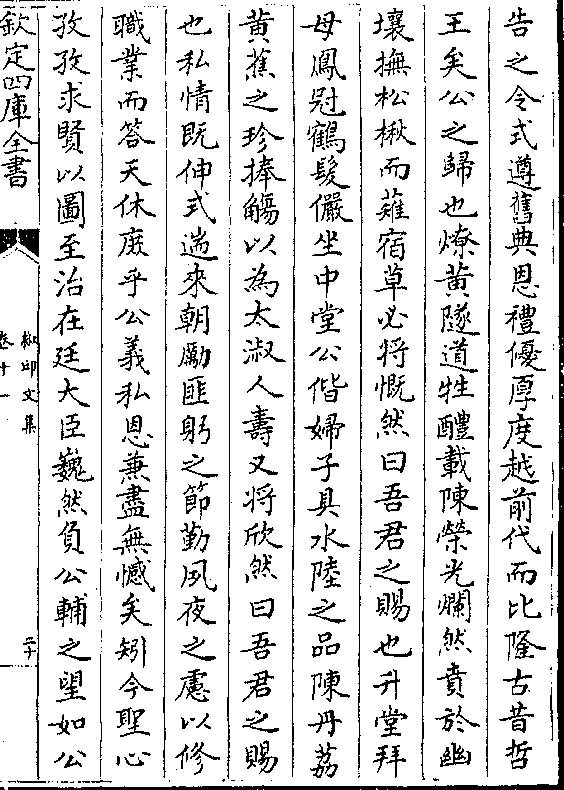 告之令式遵舊典恩禮優厚度越前代而比隆古昔哲
王矣公之歸也燎黄隧道牲醴載陳榮光爛然賁於幽
壤撫松楸而薙宿草必將慨然曰吾君之賜也升堂拜
母鳳冠鶴髮儼坐中堂公偕婦子具水陸之品陳丹荔
黄蕉之珍捧觴以為太淑人壽又将欣然曰吾君之賜
也私情既伸式遄來朝勵匪躬之節勤夙夜之慮以修
職業而答天休庻乎公義私恩兼盡無憾矣矧今聖心
孜孜求賢以圖至治在廷大臣巍然負公輔之望如公
欽定四庫全書
文集
卷十一
二十